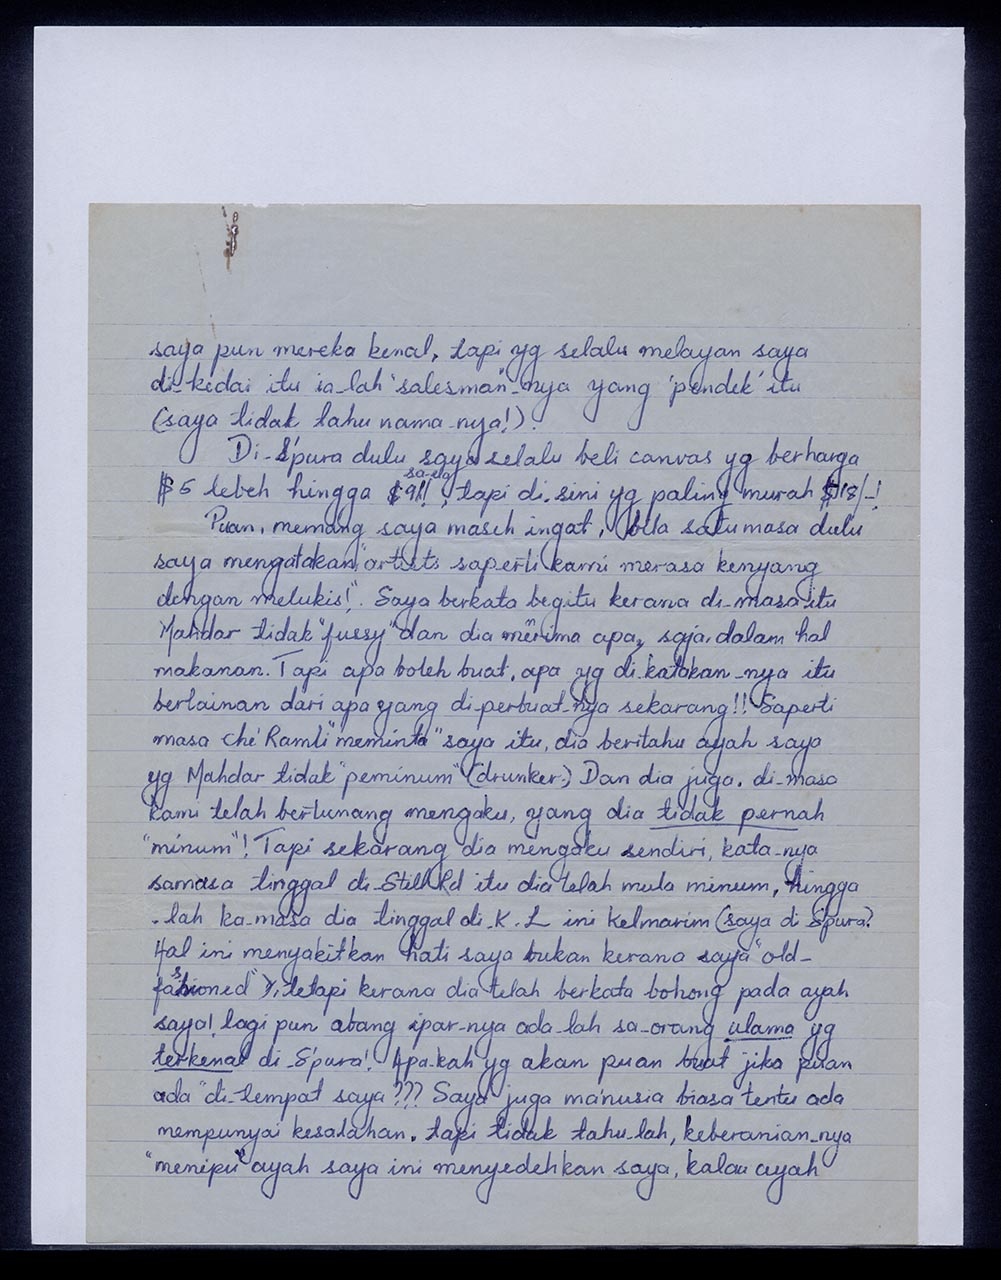 saya pun mereka kenal, tapi yg selalu melayan saya
di-kedai itu ia-lah "salesman"-nya yang 'pendek' itu
(saya tidak tahu nama-nya!).
Di-S'pura dulu saya selalu beli canvas yg berharga
$5 lebeh hingga $9!! sa-ela, tapi di-sini yg paling murah $18/-!
Puan, memang saya maseh ingat, bila satu masa dulu
saya mengatakan, "artists saperti kami merasa kenyang
dengan melukis!". Saya berkata begitu kerana di-masa itu
Mahdar tidak "fussy" dan dia menerima apa2 saja, dalam hal
makanan. Tapi apa boleh buat, apa yg di-katakan-nya itu
berlainan dari apa yang di-perbuat-nya sekarang!! Saperti
masa che' Ramli "meminta" saya itu, dia beritahu ayah saya
yg Mahdar tidak "peminum" (drunker.) Dan dia juga, di-masa
kami telah bertunang mengaku, yang dia tidak pernah
"minum"! Tapi sekarang dia mengaku sendiri, kata-nya
samasa tinggal di-Still Rd itu dia telah mula minum, hingga
-lah ka-masa dia tinggal di-K.L ini kelmarim (saya di S'pura?
Hal ini menyakitkan hati saya bukan kerana saya "old-
fashioned"), tetapi kerana dia telah berkata bohong pada ayah
saya! lagi pun abang ipar-nya ada-lah sa-orang ulama yg
terkenal di-S'pura! Apa-kah yg akan puan buat jika puan
ada "di-tempat saya??? Saya juga manusia biasa tentu ada
mempunyai kesalahan, tapi tidak tahu-lah, keberanian-nya
"menipu" ayah saya ini menyedehkan saya, kalau ayah